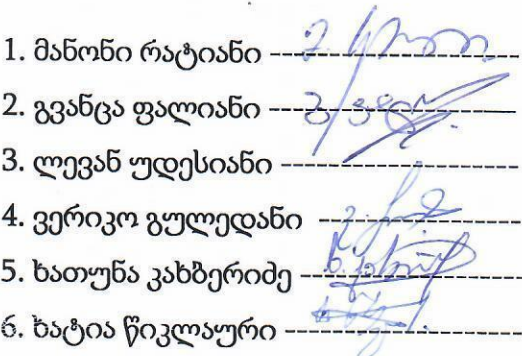 1. მანონი რატიანი
2. გვანცა ფალიანი
3. ლევან უდესიანი
4. ვერიკო გულედანი
5. ხათუნა კახბერიძე
6. ხატია წიკლაური